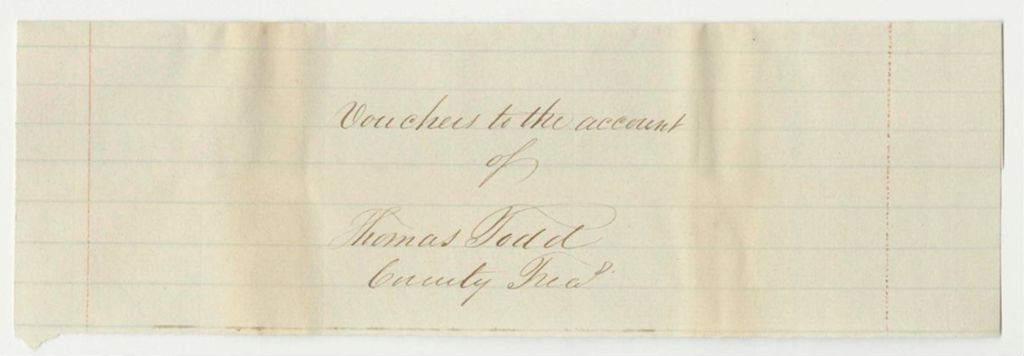 Vouchers to the account
of
Thomas Todd
County Treas